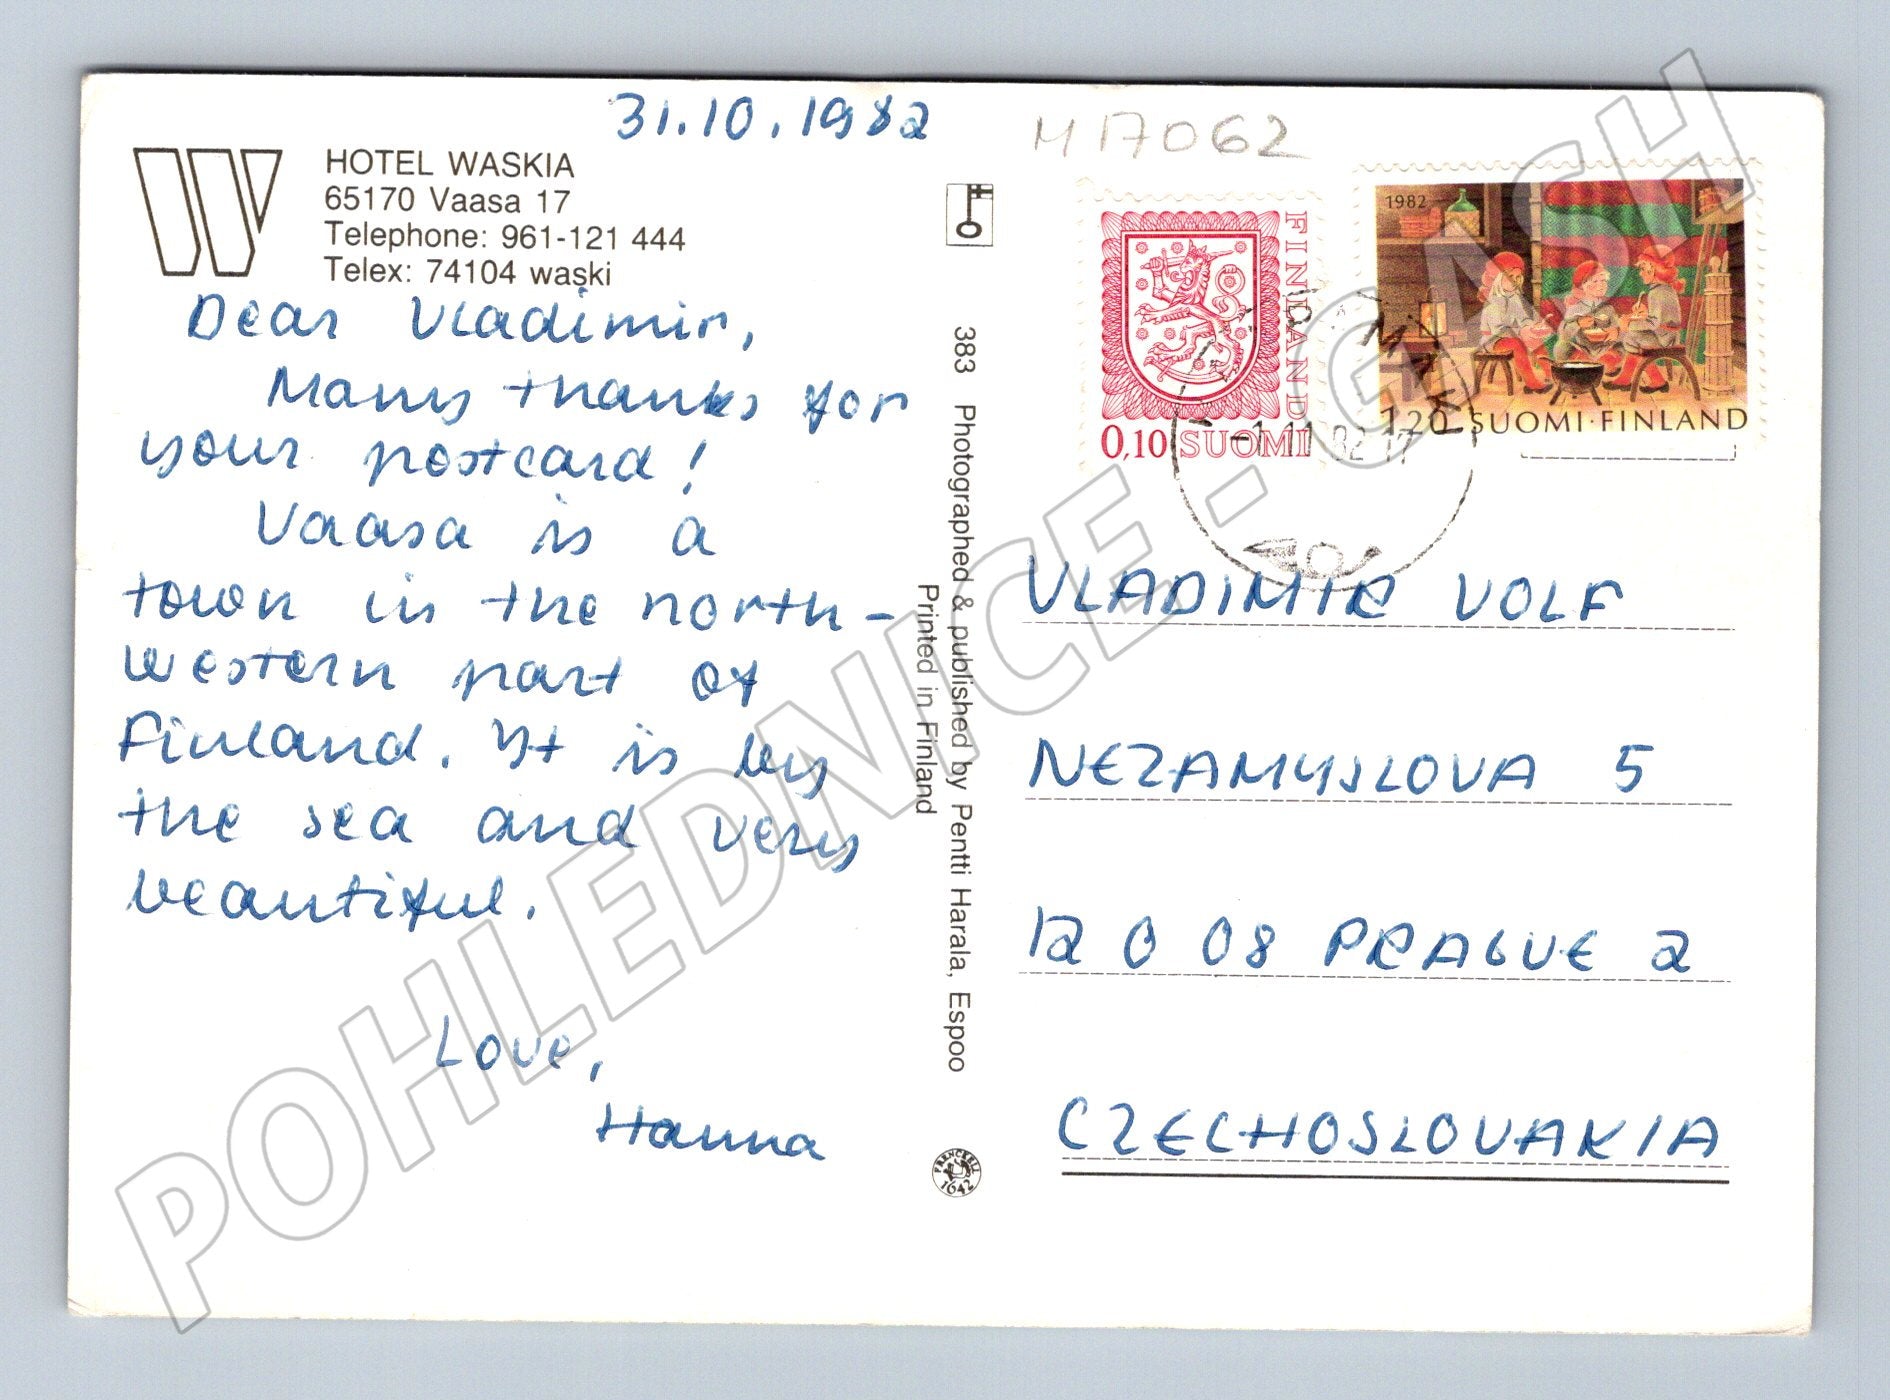 31.10.1982
HOTEL WASKIA
65170 Vaasa 17
Telephone: 961-121 444
Telex: 74104 waski
Dear Vladimir,
Many thanks for
your postcard!
Vaasa is a
town in the north-
western part of
Finland. It is by
the sea and very
beautiful.
Love,
Hanna
383 Photographed & published by Pentti Harala, Espoo
Printed in Finland
FRENCKELL
1642
M17062
FINLAND
0,10 SUOMI
1982
1,20 SUOMI·FINLAND
-1.11.82-17
VLADIMIR VOLF
NEZAMYSLOVA 5
12 0 08 PRAGUE 2
CZECHOSLOVAKIA
POHLEDNICE - GASH